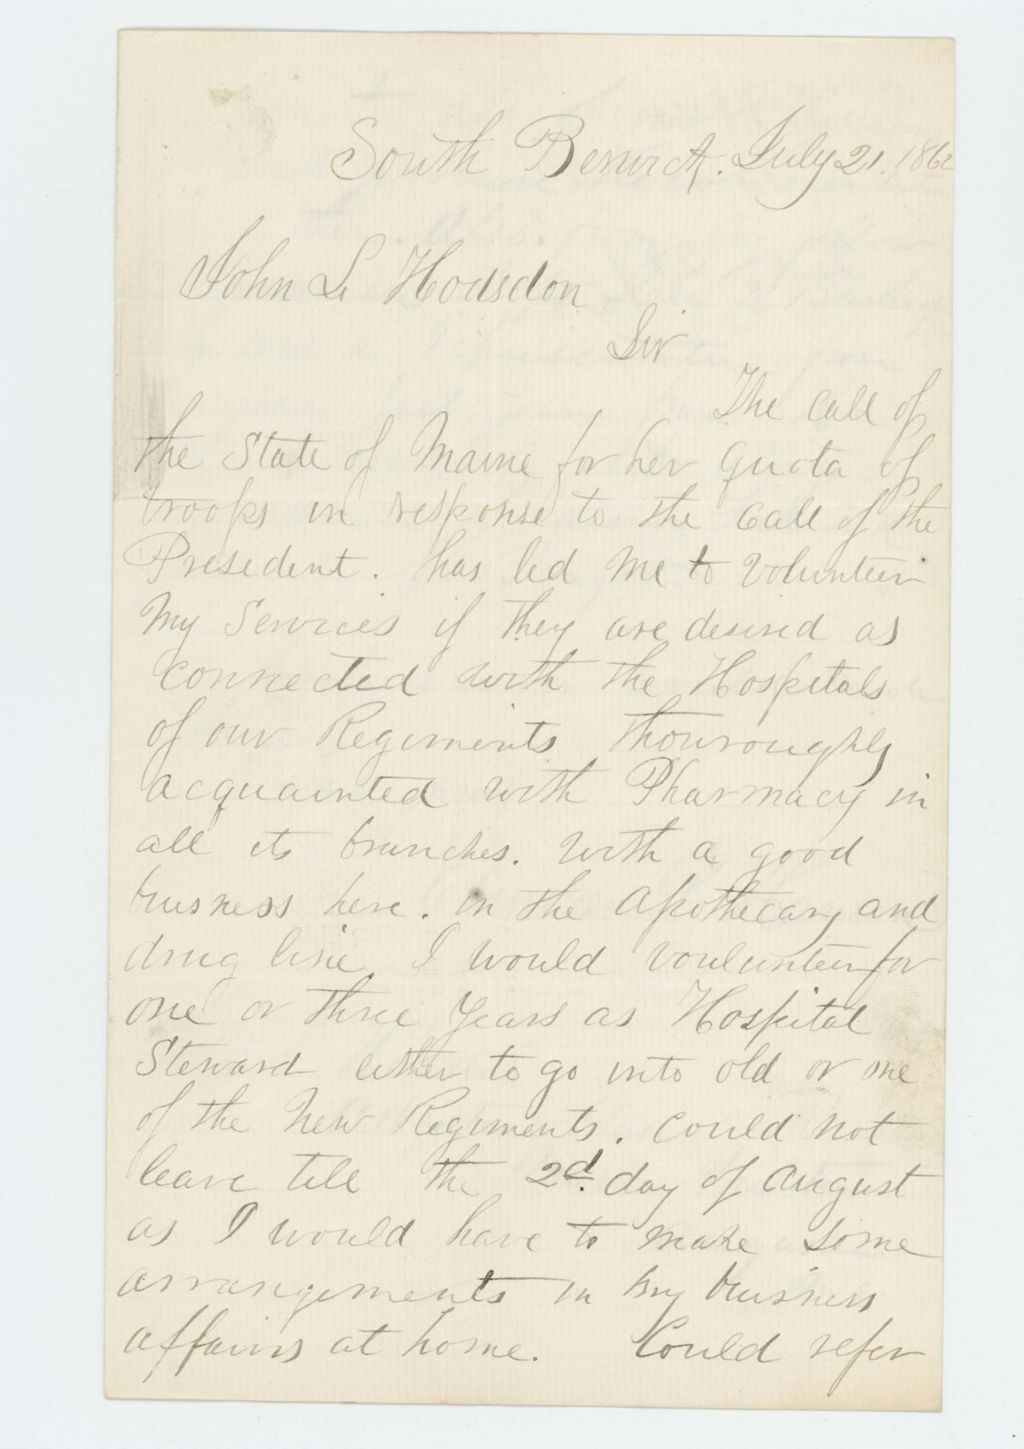 South Berwick. July 21. 1862
John L Hodsdon
Sir
The Call of
the State of Maine for her Quota of
troops in response to the Call of the
Presedent. has led me to Volunteer
My Services if they are desired as
connected with the Hospitals
of our Regiments thouroughly
acquainted with Pharmacy in
all its branches. With a good
buisness here. in the Apothecary and
drug line I would voulunteer for
one or three Years as Hospital
Steward either to go into old or one
of the New Regiments. Could not
leave till the 2d. day of August
as I would have to make Some
arrangements in my buisness
affairs at home. Could refer